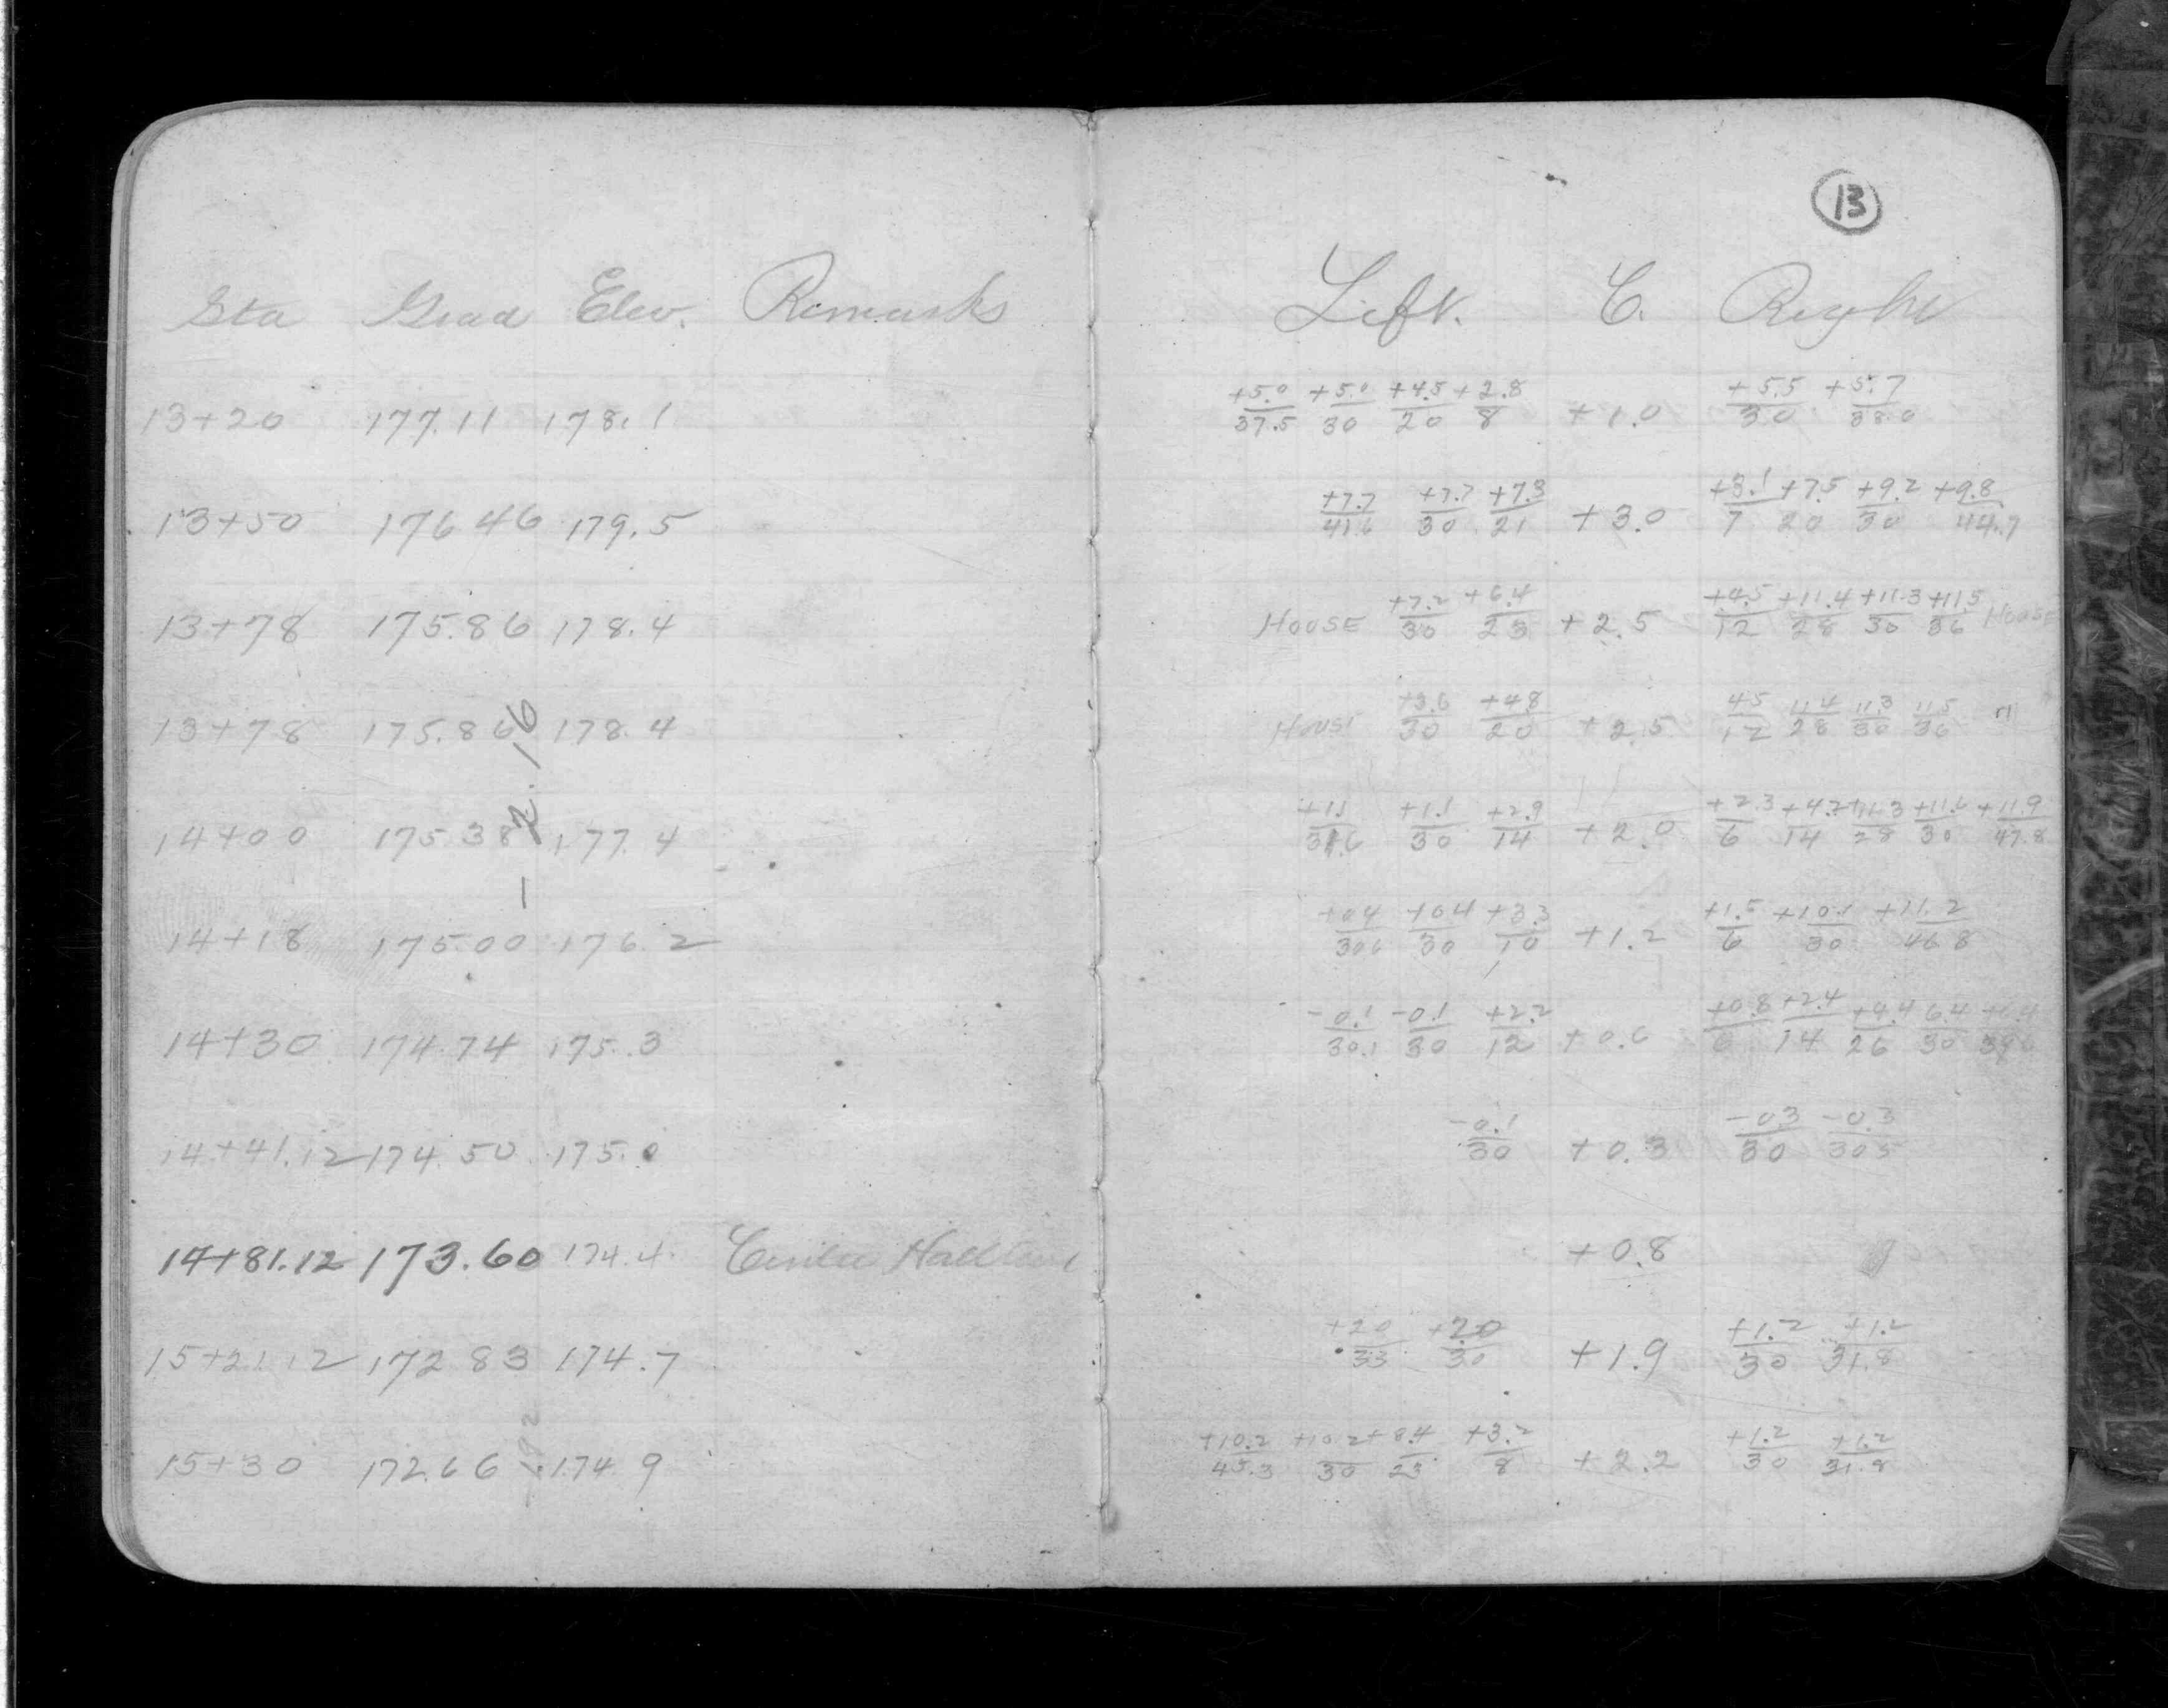 13
Sta Grad Elev. Remarks Left. C. Right
13+20 177.11 178.1 +5.0/37.5 +5.0/30 +4.5/20 +2.8/8 +1.0 +5.5/30 +5.7/38.0
13+50 176 46 179.5 +7.7/41.6 +7.7/30 +7.3/21 +3.0 +3.1/7 +7.5/20 +9.2/30 +9.8/44.7
13+78 175.86 178.4 HOUSE +7.2/30 +6.4/23 +2.5 +4.5/12 +11.4/28 +11.3/30 +11.5/36 House
13+78 175.86 178.4 House +3.6/30 +4.8/20 +2.5 4.5/12 11.4/28 11.3/30 11.5/36 "
- 2.16
14+00 175.38 177.4 +1.1/31.6 +1.1/30 +2.9/14 +2.0 +2.3/6 +4.2/14 +11.3/28 +11.6/30 +11.9/47.8
14+18 175.00 176.2 +0.4/30.6 +0.4/30 +3.3/10 +1.2 +1.5/6 +10.1/30 +11.2/46.8
14+30 174.74 175.3 -0.1/30.1 -0.1/30 +2.2/12 +0.6 +0.8/6 +2.4/14 +4.4/26 6.4/30 +6.4/39.6
14+41.12 174.50 175.0 -0.1/30 +0.3 -0.3/30 -0.3/30.5
14+81.12 173.60 174.4 +0.8
15+21.12 172 83 174.7 +2.0/33 +2.0/30 +1.9 +1.2/30 +1.2/31.8
15+30 172.66 174.9 +10.2/45.3 +10.2/30 +8.4/23 +3.2/8 +2.2 +1.2/30 +1.2/31.8